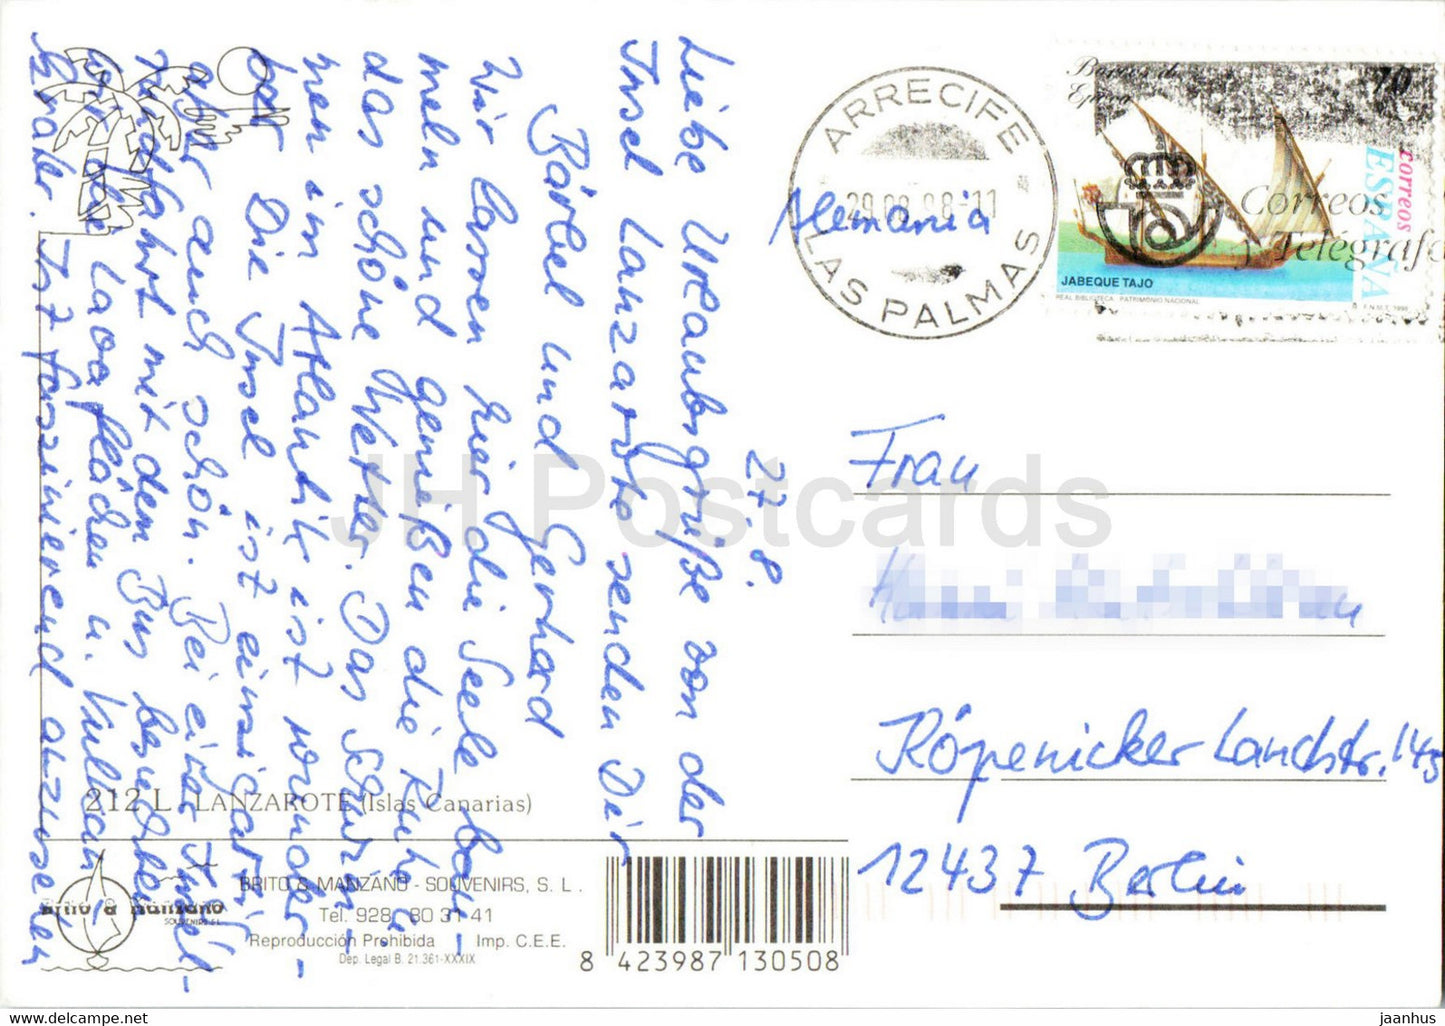 27.8.
Liebe Urlaubsgrüße von der
Insel Lanzarote senden Dir
Bärbel und Gerhard
Wir lassen hier die Seele bau-
meln und genießen die Ruhe u.
das schöne Wetter. Das Schwim-
men im Atlantik ist wunder-
bar. Die Insel ist einzigartig
aber auch schön. Bei einer Insel-
rundfahrt mit dem Bus besuchten
wir die Lavaflächen u. Vulkan
Krater. Ist faszinierend anzusehen
ARRECIFE
29.08.98-11
LAS PALMAS
Alemania
Barcos de
Epoca
70
correos
ESPAÑA
JABEQUE TAJO
REAL BIBLIOTECA. PATRIMONIO NACIONAL
F.N.M.T. 1998
Correos
y Telégrafos
Frau
Köpenicker Landstr. 145
12437 Berlin
212 L. LANZAROTE (Islas Canarias)
BRITO & MANZANO - SOUVENIRS, S. L.
Tel. 928 80 31 41
Reproducción Prohibida Imp. C.E.E.
Dep. Legal B. 21.361-XXXIX
Brito & Manzano
SOUVENIRS S.L.
8 423987 130508
JH Postcards
jaanhus